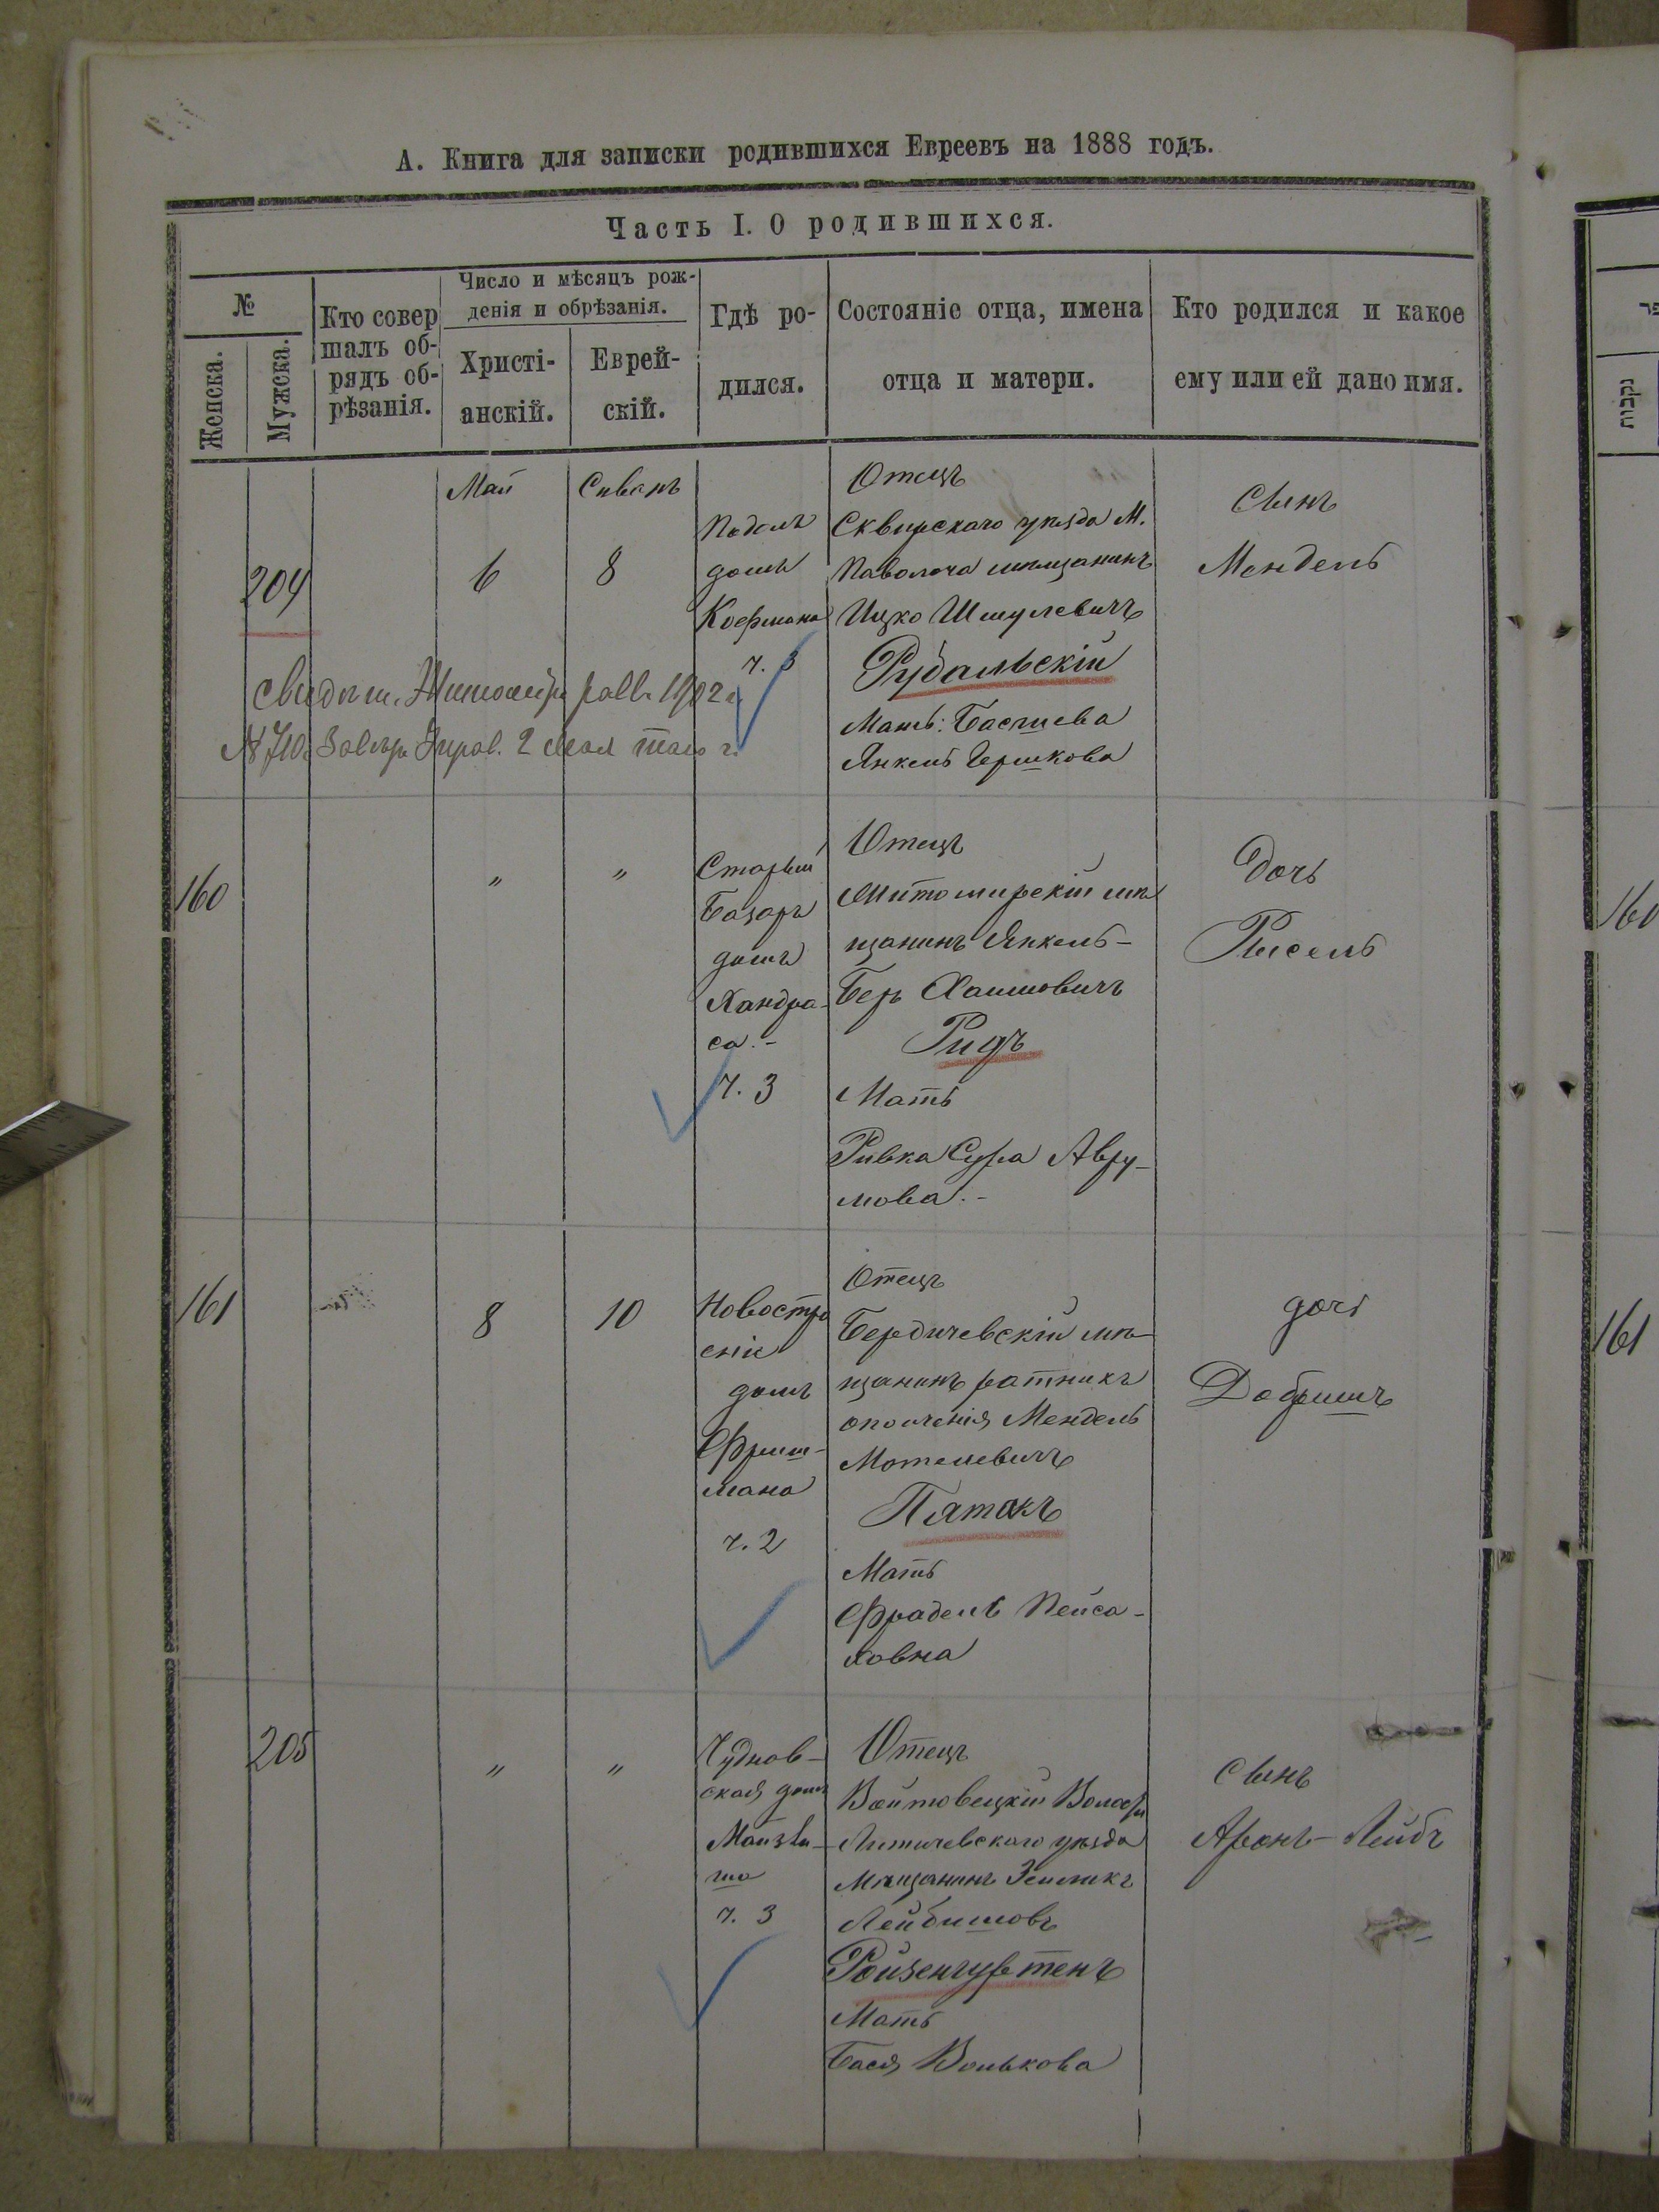 А. Книга для записки родившихся Евреевъ на 1888 годъ.
Часть I. О родившихся.
№
Женска.
Мужска.
Кто совер
шалъ об-
рядъ об-
рѣзанія.
Число и мѣсяцъ рож-
денія и обрѣзанія.
Христі-
анскій.
Еврей-
скій.
Гдѣ ро-
дился.
Состояніе отца, имена
отца и матери.
Кто родился и какое
ему или ей дано имя.
204
Май
6
Сиванъ
8
Подолъ
домъ
Кофмана
ч. 3
Отецъ
Сквирскаго уѣзда М.
Паволоча мѣщанинъ
Ицко Шмулевичъ
Рудальскій
Мать: Басшева
Янкель Гершкова
Сынъ
Мендель
Свидѣт. Житомір. 1902 г.
№ 710. 2 мая того г.
160
"
"
Старый
Базаръ
домъ
Хандра-
са.-
ч. 3
Отецъ
Житомирскій мѣ
щанинъ Янкель-
Беръ Хаимовичъ
Ридъ
Мать
Ривка Сура Авру-
мова.-
Дочь
Рисель
161
8
10
Новостро
еніе
домъ
Фриш-
мана
ч. 2
Отецъ
Бердичевскій мѣ-
щанинъ ратникъ
ополченія Мендель
Мотелевичъ
Пятакъ
Мать
Фрадель Пейса-
ховна
дочь
Добришъ
205
"
"
Чуднов-
ская домъ
Майзли-
ша
ч. 3
Отецъ
Войтовецкій Волости
Литичевскаго уѣзда
Мѣщанинъ Зейликъ
Лейбишовъ
Ройзенгуртенъ
Мать
Бася Волькова
Сынъ
Аронъ-Лейбъ
נקבות
160
161